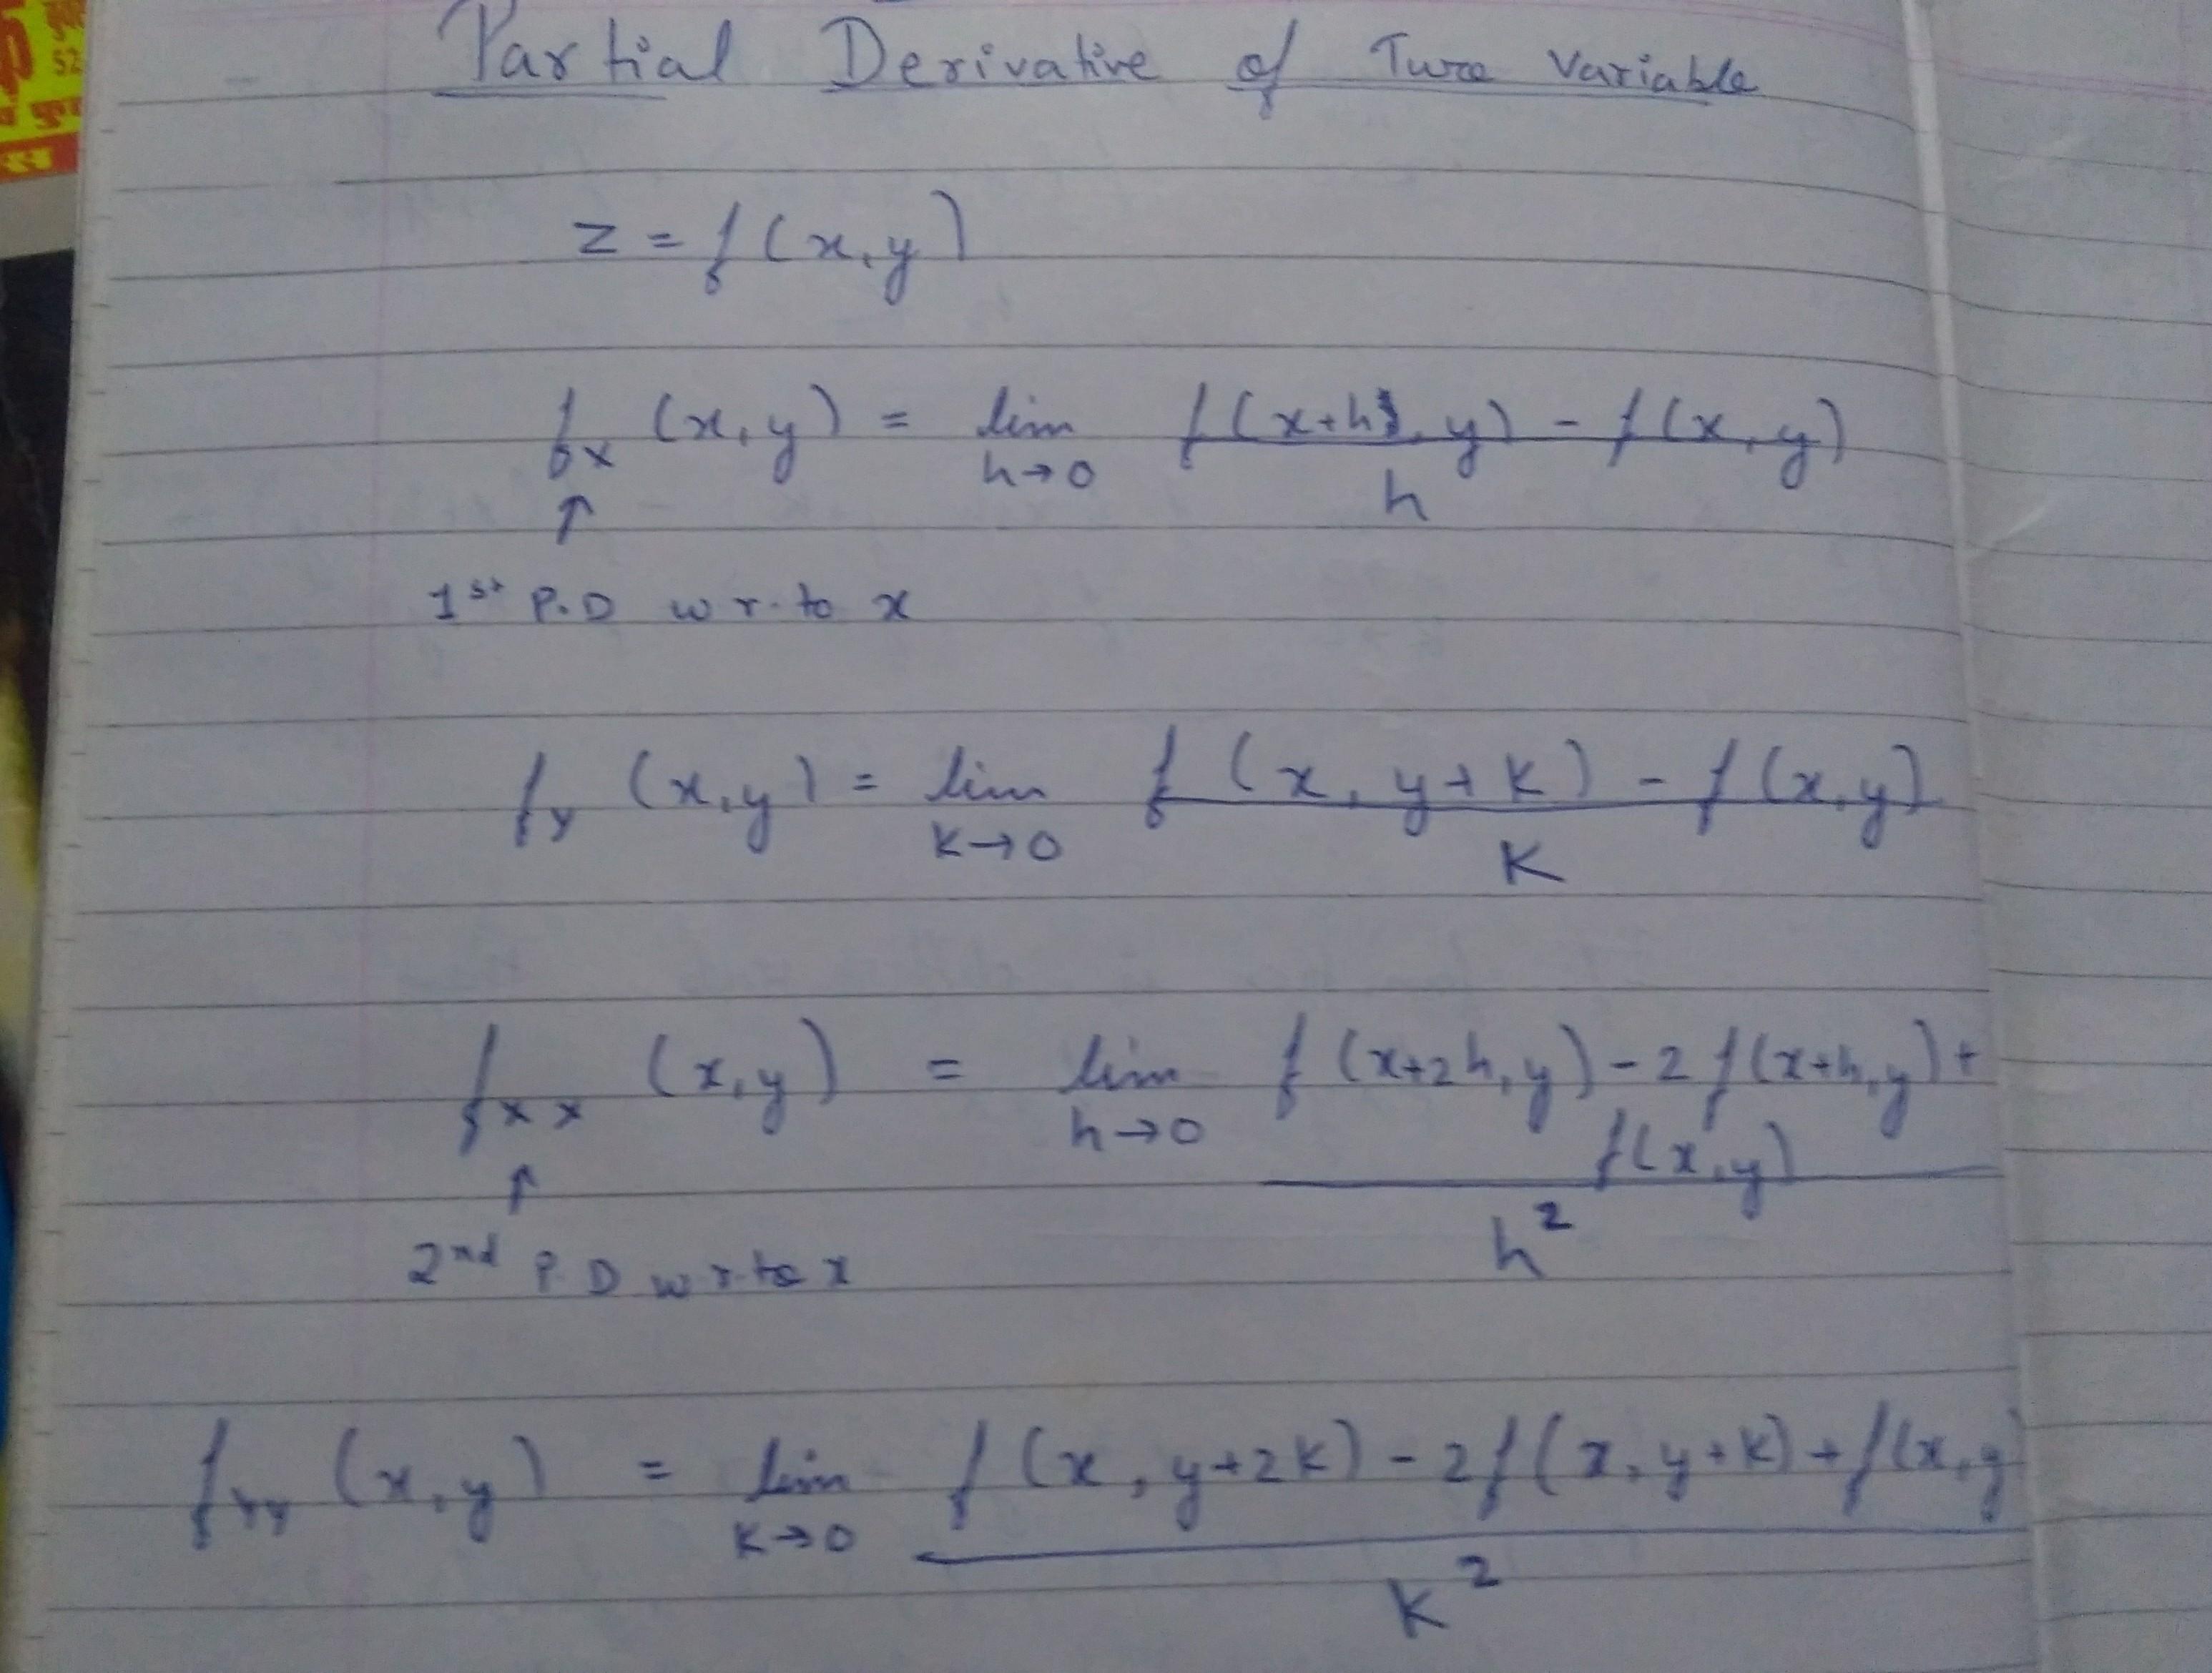 Partial Derivative of Two Variable
z = f(x,y)
fx (x,y) = lim h→0 f(x+h, y) - f(x,y) / h
↑
1st P.D w r. to x
fy (x,y) = lim k→0 f(x, y+k) - f(x,y) / k
fxx (x,y) = lim h→0 f(x+2h,y) - 2f(x+h,y) + f(x,y) / h²
↑
2nd P. D w r. to x
fyy (x,y) = lim k→0 f(x, y+2k) - 2f(x, y+k) + f(x,y / k²